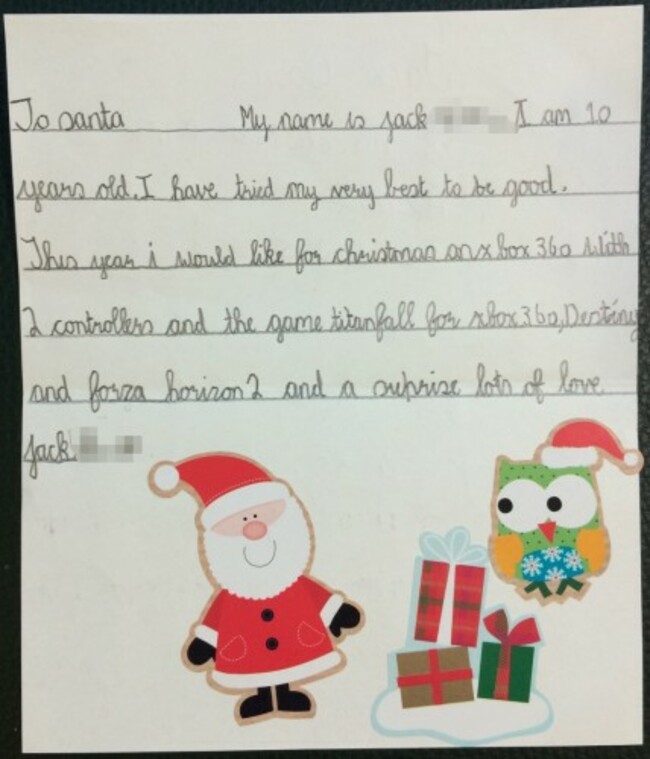 To santa My name is jack I am 10
years old. I have tried my very best to be good.
This year i would like for christmas an x box 360 With
2 controllers and the game titanfall for xbox 360, Destiny
and forza horizon 2 and a suprise lots of love
jack